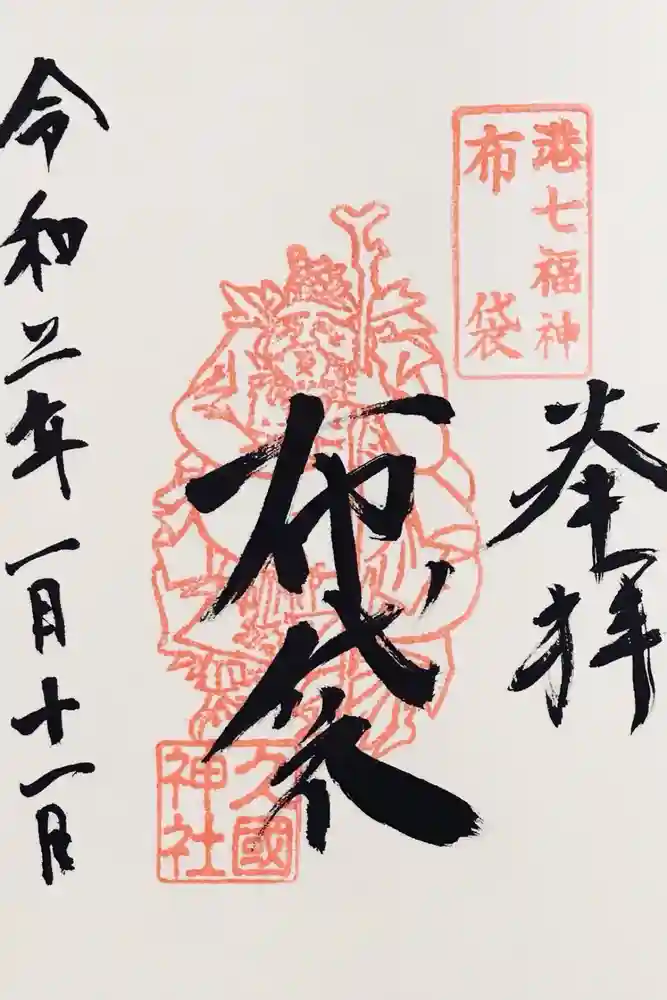 港七福神
布袋
奉拝
布袋
久國
神社
令和三年一月十一日